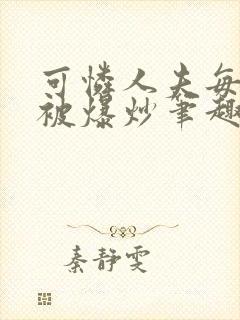 可怜人夫每
被爆炒笔趣
秦静雯